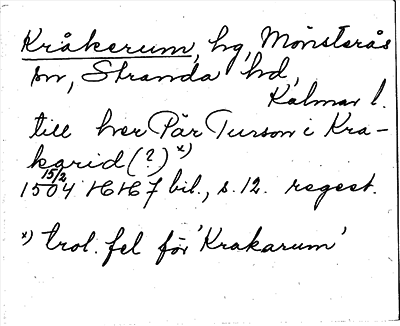 Kråkerum, hg, Mönsterås
sn, Stranda hd,
Kalmar l.
till her Pär Turson i Kra-
kgrid (?) x)
15/2
1504 HH 7 bil., s. 12. regest.
x) trol. fel för 'Krakarum'